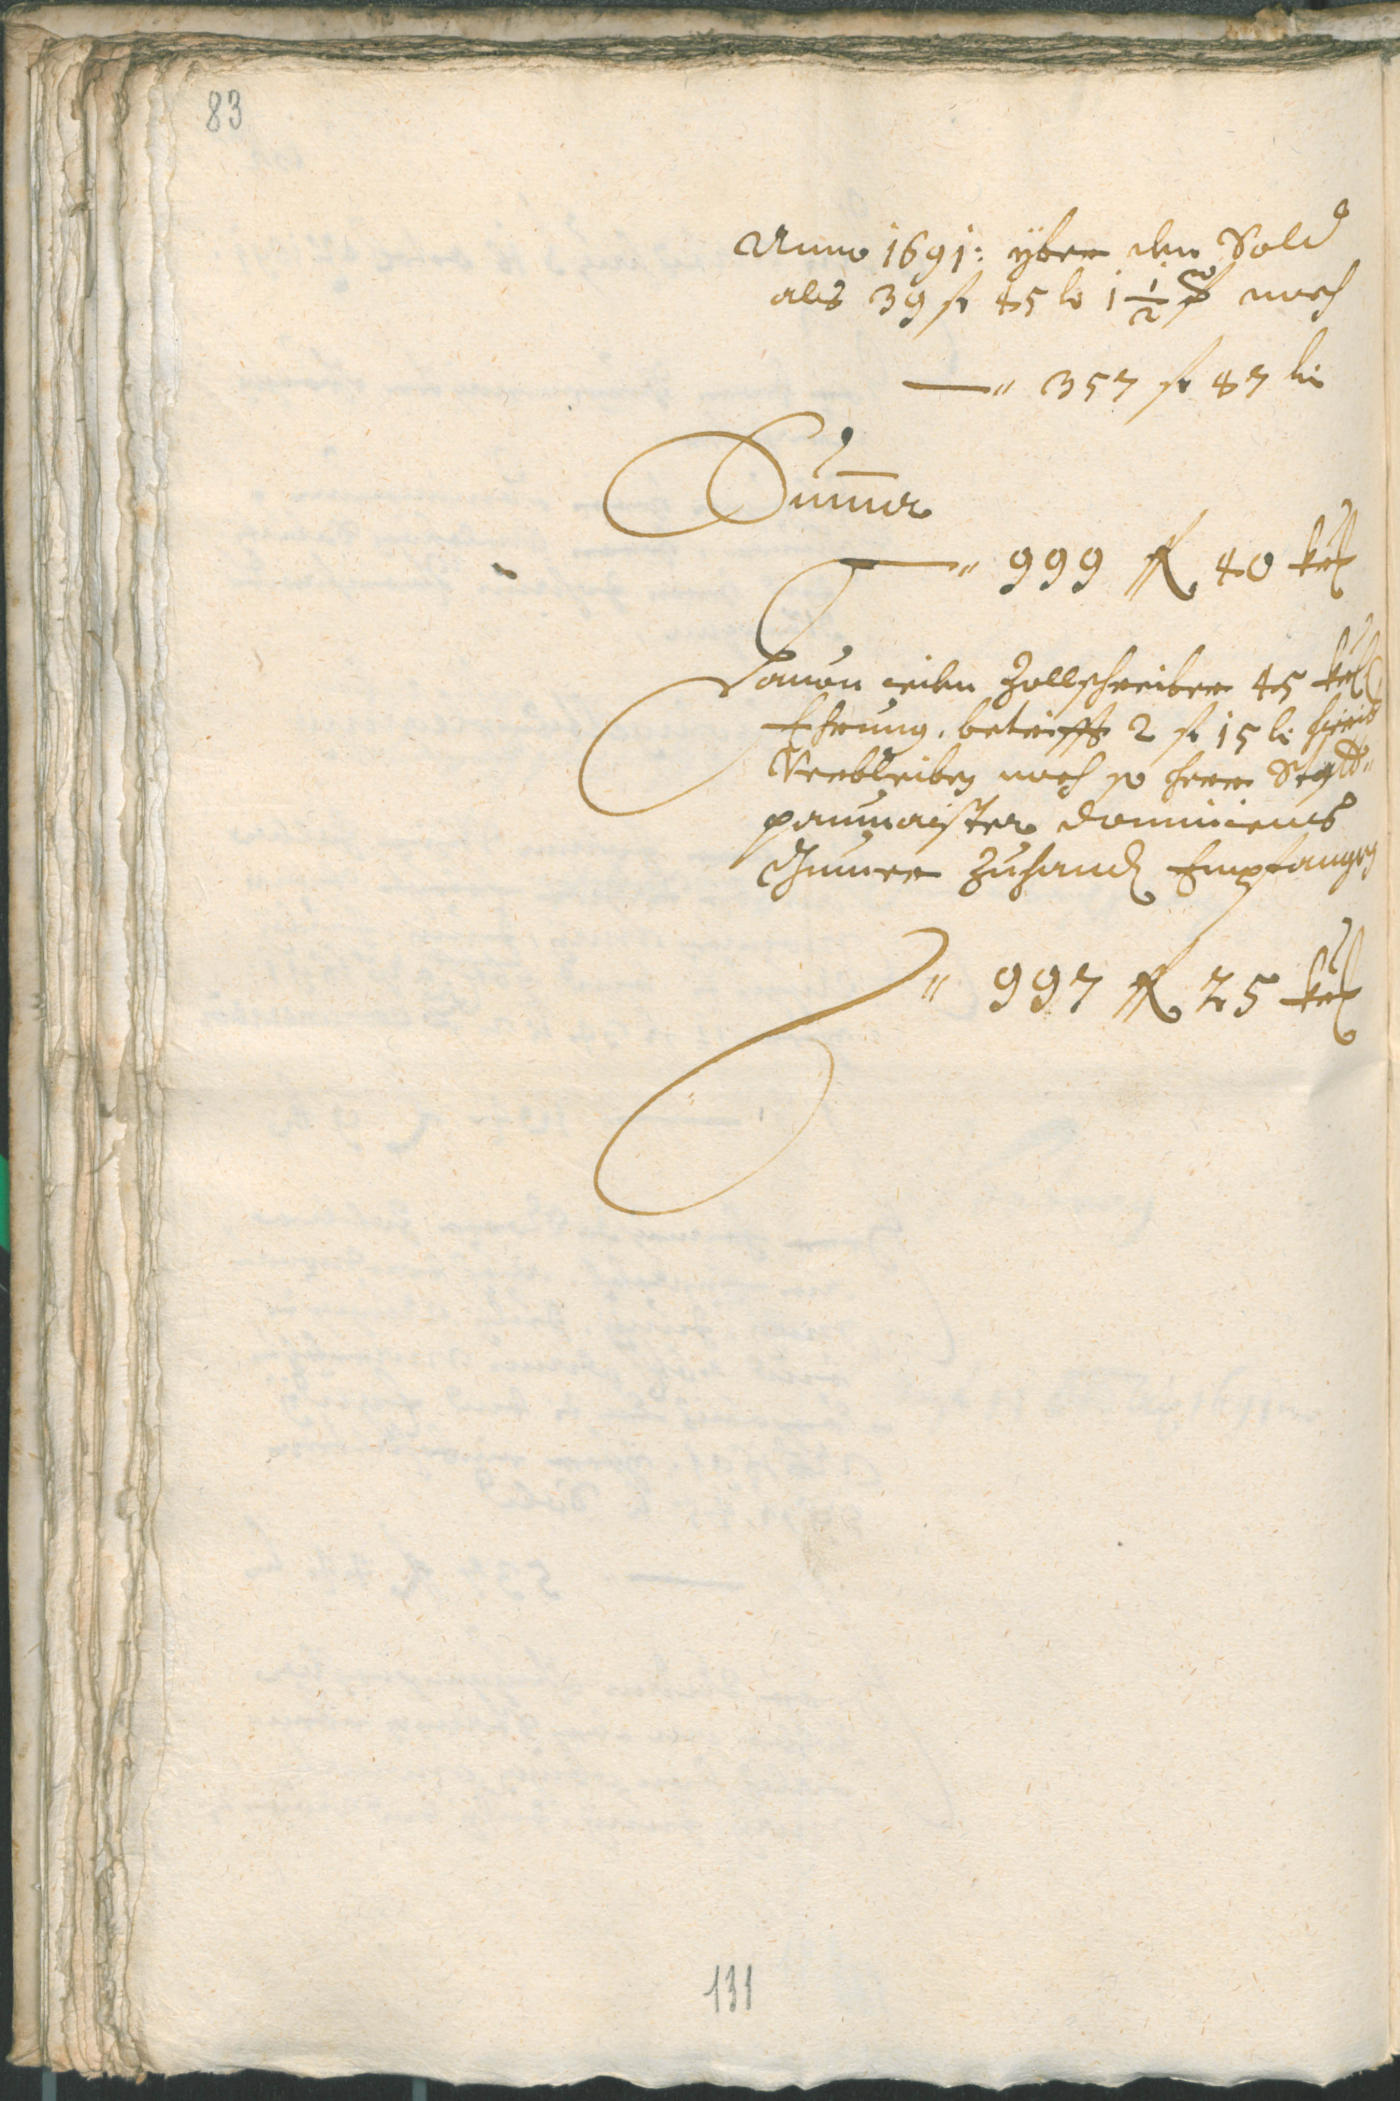 83
Anno 1691: yber den Sold
als 39 fl 45 kr 1 1/2 ₰ noch
—" 357 fl 47 kr
Summa
—" 999 fl 40 kr
Dauon ieden Zollschreiber 45 kr
Ehrung, betrifft 2 fl 15 kr
Verbleiben noch so herr Statt-
paumaister Dominicus
Zuhand Empfangen
" 997 fl 25 kr
131